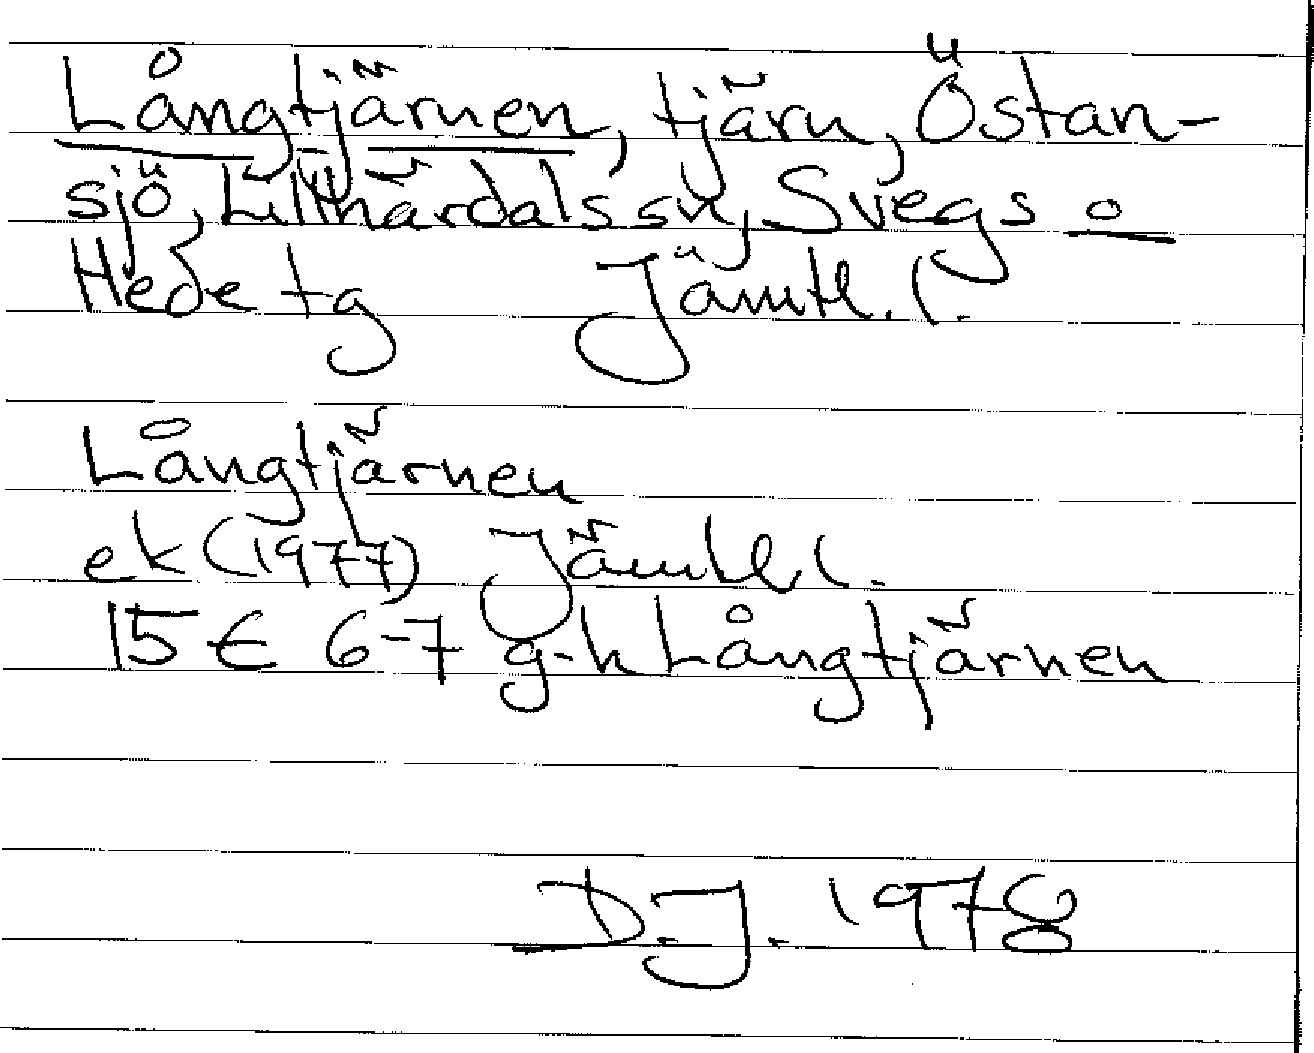 Långtjärnen, tjärn, Östan-
sjö, Lillhärdals sn, Svegs o
Hede tg Jämtl. l.
Långtjärnen
ek (1977) Jämtl l.
15 E 6-7 g-h Långtjärnen
D.J. 1978